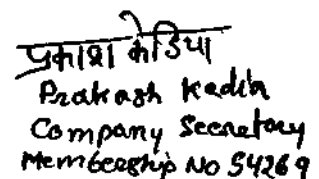 प्रकाश केडिया
Prakash Kedia
Company Secretary
Membership No 54269